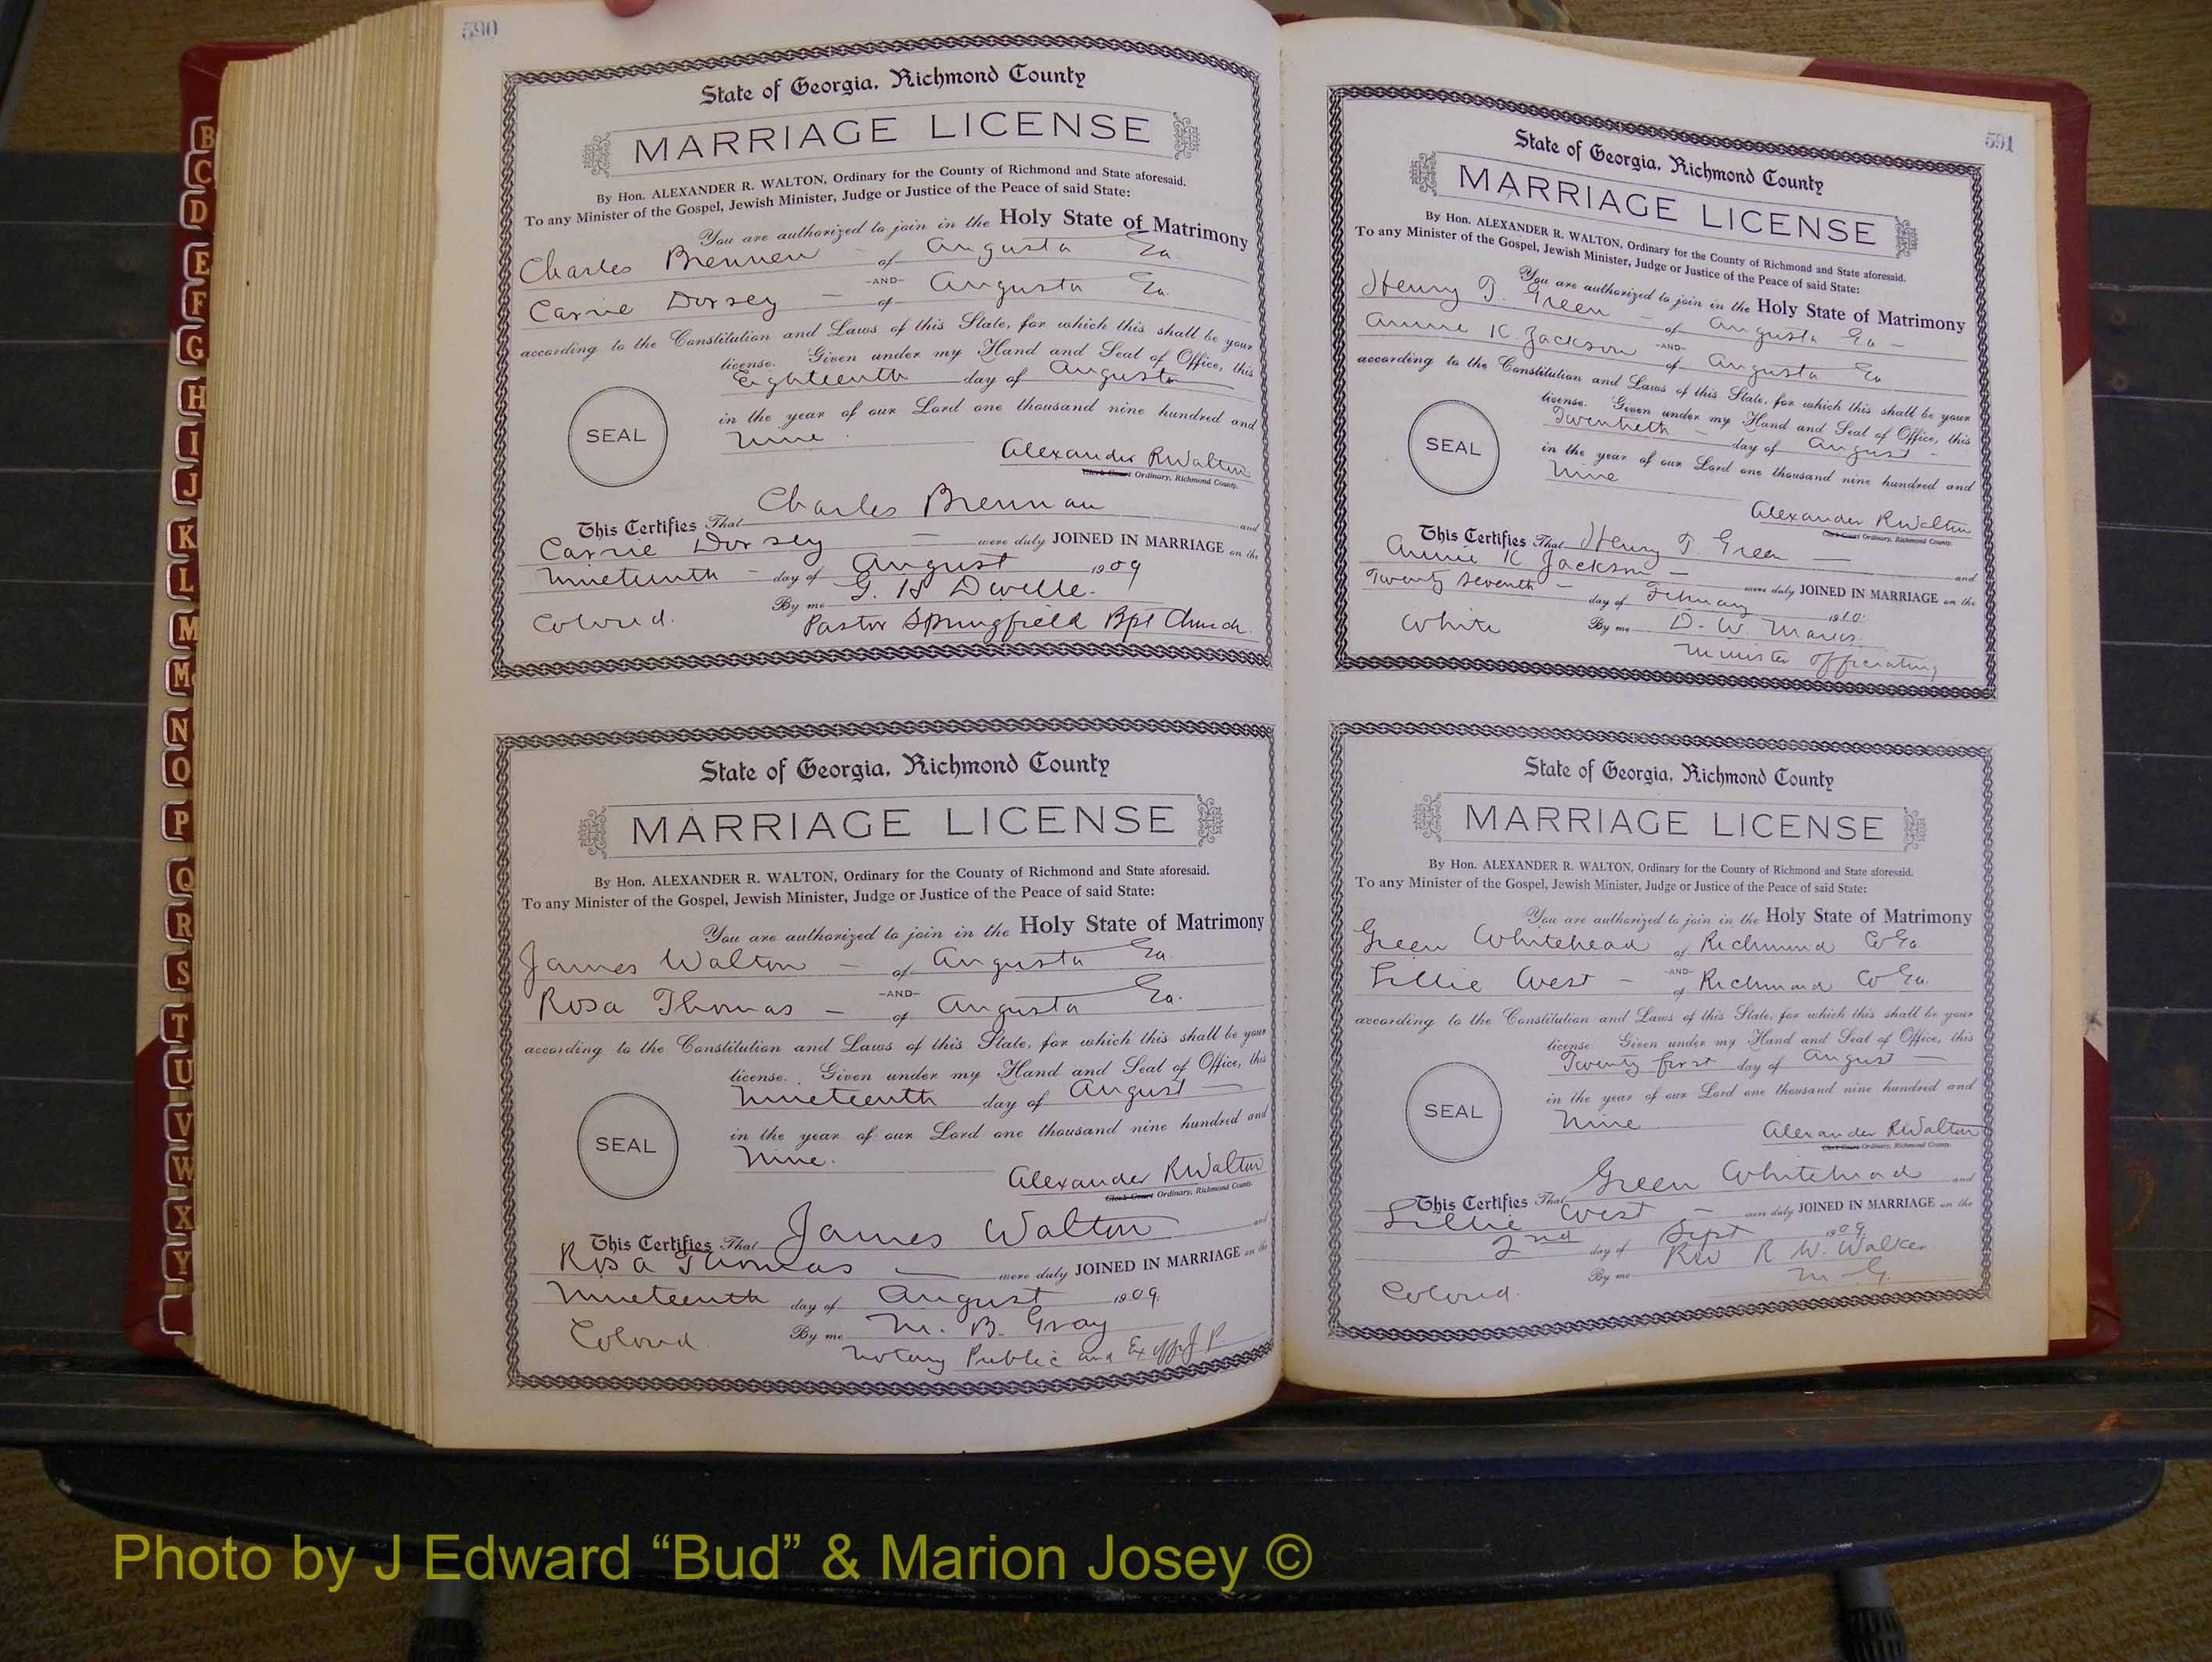 590
State of Georgia, Richmond County
MARRIAGE LICENSE
By Hon. ALEXANDER R. WALTON, Ordinary for the County of Richmond and State aforesaid.
To any Minister of the Gospel, Jewish Minister, Judge or Justice of the Peace of said State:
You are authorized to join in the Holy State of Matrimony
Charles Brennen - of Augusta Ga
-AND-
Carrie Dorsey - of Augusta Ga.
according to the Constitution and Laws of this State, for which this shall be your
license. Given under my Hand and Seal of Office, this
Eighteenth day of Augusta
in the year of our Lord one thousand nine hundred and
nine
SEAL
Alexander R Walton
Clerk Court Ordinary, Richmond County.
This Certifies That Charles Brennan and
Carrie Dorsey - were duly JOINED IN MARRIAGE on the
nineteenth - day of August 1909
By me G. H Dwelle-
Colored. Pastor Springfield Bpt Church.
State of Georgia, Richmond County
MARRIAGE LICENSE
By Hon. ALEXANDER R. WALTON, Ordinary for the County of Richmond and State aforesaid.
To any Minister of the Gospel, Jewish Minister, Judge or Justice of the Peace of said State:
You are authorized to join in the Holy State of Matrimony
James Walton - of Augusta Ga.
-AND-
Rosa Thomas - of Augusta Ga.
according to the Constitution and Laws of this State, for which this shall be your
license. Given under my Hand and Seal of Office, this
nineteenth day of August -
in the year of our Lord one thousand nine hundred and
nine.
SEAL
Alexander R Walton
Clerk Court Ordinary, Richmond County.
This Certifies That James Walton and
Rosa Thomas - were duly JOINED IN MARRIAGE on the
nineteenth day of August 1909.
Colored By me M. B. Gray
Notary Public and Ex offi J P
591
State of Georgia, Richmond County
MARRIAGE LICENSE
By Hon. ALEXANDER R. WALTON, Ordinary for the County of Richmond and State aforesaid.
To any Minister of the Gospel, Jewish Minister, Judge or Justice of the Peace of said State:
You are authorized to join in the Holy State of Matrimony
Henry T. Green - of Augusta Ga -
-AND-
Annie K Jackson of Augusta Ga
according to the Constitution and Laws of this State, for which this shall be your
license. Given under my Hand and Seal of Office, this
Twentieth - day of August -
in the year of our Lord one thousand nine hundred and
nine
SEAL
Alexander R Walton
Clerk Court Ordinary, Richmond County.
This Certifies That Henry T. Green - and
Annie K Jackson - were duly JOINED IN MARRIAGE on the
Twenty seventh - day of February 1910.
White By me D. W.
Minister officiating
State of Georgia, Richmond County
MARRIAGE LICENSE
By Hon. ALEXANDER R. WALTON, Ordinary for the County of Richmond and State aforesaid.
To any Minister of the Gospel, Jewish Minister, Judge or Justice of the Peace of said State:
You are authorized to join in the Holy State of Matrimony
Green Whitehead of Richmond Co Ga
-AND-
Lillie West - of Richmond Co Ga.
according to the Constitution and Laws of this State, for which this shall be your
license. Given under my Hand and Seal of Office, this
Twenty first day of August -
in the year of our Lord one thousand nine hundred and
nine
SEAL
Alexander R Walton
Clerk Court Ordinary, Richmond County.
This Certifies That Green Whitehead and
Lillie West - were duly JOINED IN MARRIAGE on the
2nd day of Sept 1909.
By me Rev R W. Walker
Colored. M-G.
B
C
D
E
F
G
H
I
J
K
L
M
Mc
N
O
P
Q
R
S
T
U
V
W
X
Y
Photo by J Edward “Bud” & Marion Josey ©